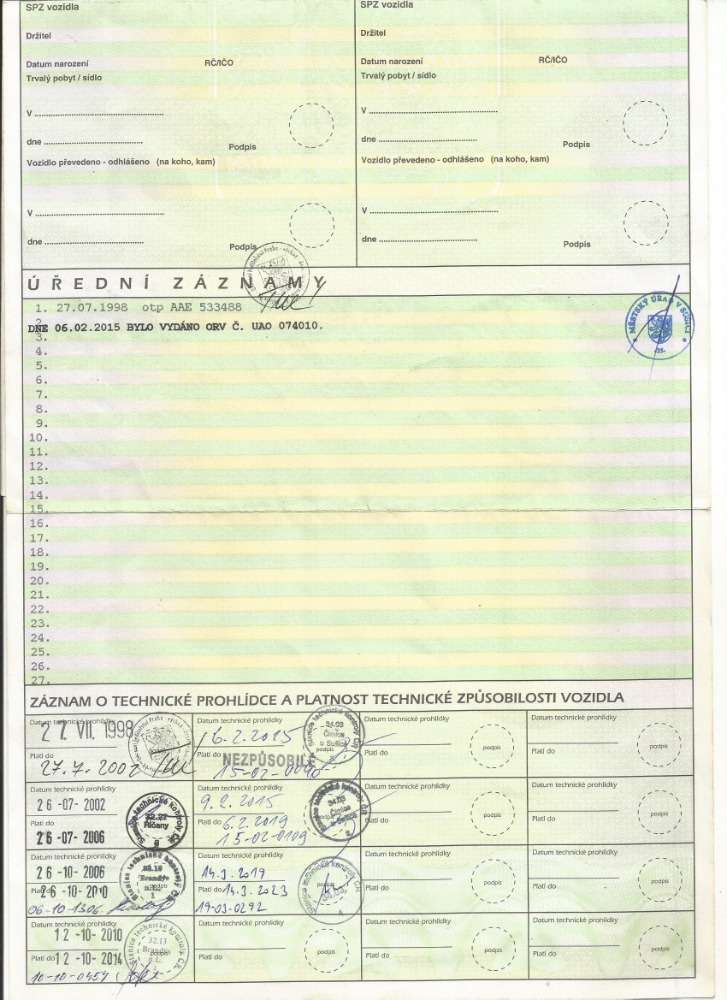 SPZ vozidla
Držitel
Datum narození RČ/IČO
Trvalý pobyt / sídlo
V
dne
Podpis
Vozidlo převedeno - odhlášeno (na koho, kam)
V
dne
Podpis
SPZ vozidla
Držitel
Datum narození RČ/IČO
Trvalý pobyt / sídlo
V
dne
Podpis
Vozidlo převedeno - odhlášeno (na koho, kam)
V
dne
Podpis
ÚŘEDNÍ ZÁZNAMY
1. 27.07.1998 otp AAE 533488
2.
DNE 06.02.2015 BYLO VYDÁNO ORV Č. UAO 074010.
MĚSTSKÝ ÚŘAD V SUŠICI
3.
4.
5.
6.
7.
8.
9.
10.
11.
12.
13.
14.
15.
16.
17.
18.
19.
20.
21.
22.
23.
24.
25.
26.
27.
ZÁZNAM O TECHNICKÉ PROHLÍDCE A PLATNOST TECHNICKÉ ZPŮSOBILOSTI VOZIDLA
Datum technické prohlídky
27 VII. 1998
Platí do
27.7.2002
Datum technické prohlídky
6.2.2015
Platí do
NEZPŮSOBILÉ
15-02-0090
Datum technické prohlídky
Platí do
podpis
Datum technické prohlídky
Platí do
podpis
Datum technické prohlídky
26-07-2002
Platí do
26-07-2006
Stanice technické kontroly ČR
32.21
Říčany
Datum technické prohlídky
9.2.2015
Platí do
6.2.2019
15-02-0109
Datum technické prohlídky
Platí do
podpis
Datum technické prohlídky
Platí do
podpis
Datum technické prohlídky
26-10-2006
Platí do
26-10-2010
06-10-1306
Datum technické prohlídky
14.3.2019
Platí do
14.3.2023
19-03-0292
Datum technické prohlídky
Platí do
podpis
Datum technické prohlídky
Platí do
podpis
Datum technické prohlídky
12-10-2010
Platí do
12-10-2014
10-10-0457
32.13
Datum technické prohlídky
Platí do
podpis
Datum technické prohlídky
Platí do
podpis
Datum technické prohlídky
Platí do
podpis